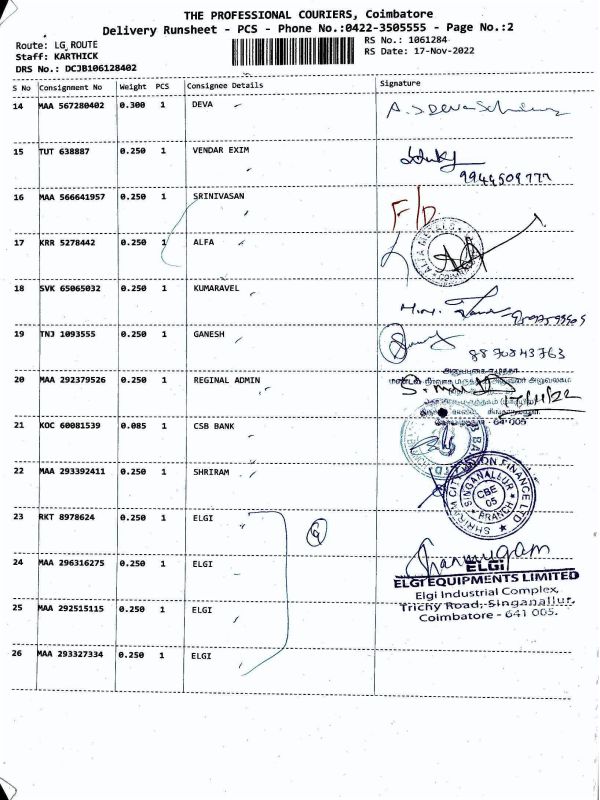 THE PROFESSIONAL COURIERS, Coimbatore
Delivery Runsheet - PCS - Phone No.:0422-3505555 - Page No.:2
Route: LG ROUTE
Staff: KARTHICK
DRS No.: DCJB106128402
RS No.: 1061284
RS Date: 17-Nov-2022
S No Consignment No Weight PCS Consignee Details Signature
14 MAA 567280402 0.300 1 DEVA
15 TUT 638887 0.250 1 VENDAR EXIM
9944509777
16 MAA 566641957 0.250 1 SRINIVASAN
F/D
17 KRR 5278442 0.250 1 ALFA
18 SVK 65065032 0.250 1 KUMARAVEL
19 TNJ 1093555 0.250 1 GANESH
8870843763
20 MAA 292379526 0.250 1 REGINAL ADMIN
17/11/22
641 005
21 KOC 60081539 0.085 1 CSB BANK
22 MAA 293392411 0.250 1 SHRIRAM
SHRIRAM CITY UNION FINANCE LTD
SINGANALLUR
CBE
05
BRANCH
23 RKT 8978624 0.250 1 ELGI
24 MAA 296316275 0.250 1 ELGI
Shanmugam
ELGI
ELGI EQUIPMENTS LIMITED
Elgi Industrial Complex,
Trichy Road, Singanallur,
Coimbatore - 641 005.
25 MAA 292515115 0.250 1 ELGI
26 MAA 293327334 0.250 1 ELGI